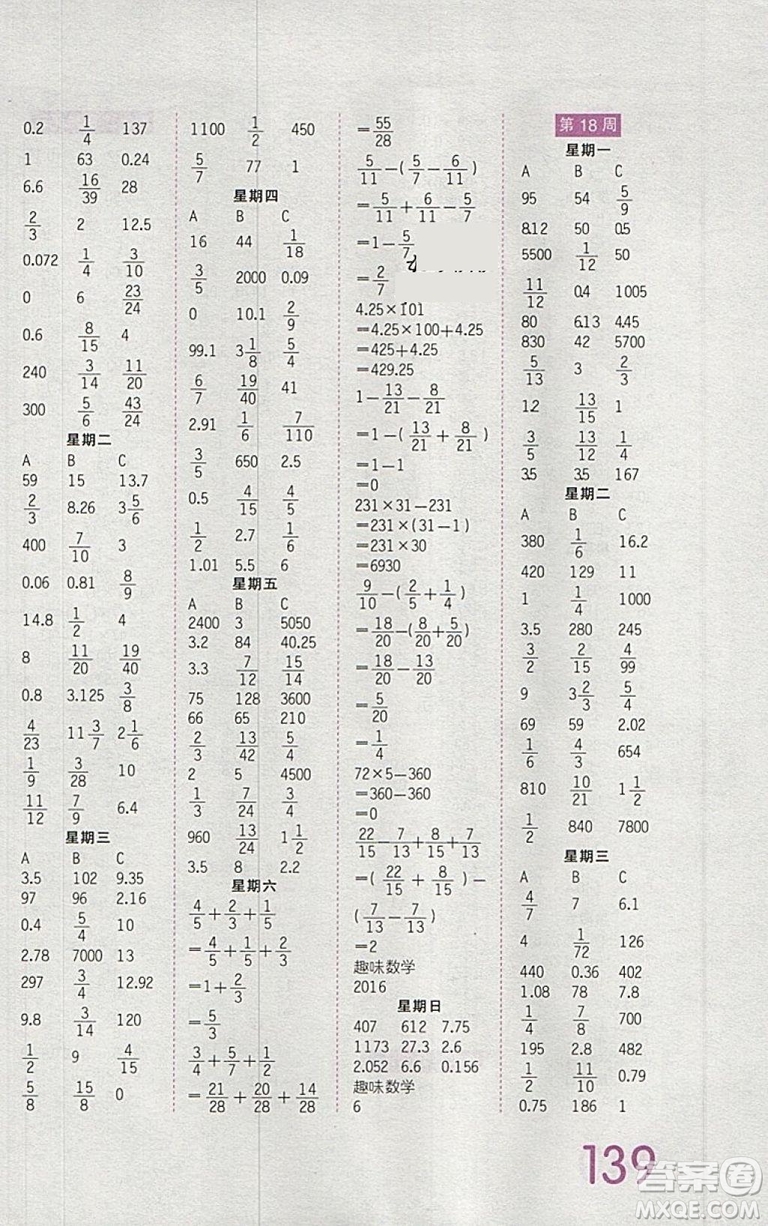 0.2 1/4 137
1 63 0.24
6.6 16/39 28
2/3 2 12.5
0.072 1/4 3/10
0 6 23/24
0.6 8/15 4
240 3/14 11/20
300 5/6 43/24
星期二
A B C
59 15 13.7
2/3 8.26 3 5/6
400 7/10 3
0.06 0.81 8/9
14.8 1/2 4
8 11/20 19/40
0.8 3.125 3/8
4/23 11 3/7 2 1/6
1/9 3/28 10
11/12 7/9 6.4
星期三
A B C
3.5 102 9.35
97 96 2.16
0.4 5/4 10
2.78 7000 13
297 3/4 12.92
9.8 3/14 120
1/2 9 4/15
5/8 15/8 0
1100 1/2 450
5/7 77 1
星期四
A B C
16 44 1/18
3/5 2000 0.09
0 10.1 2/9
99.1 3 1/8 5/4
6/7 19/40 41
2.91 1/6 7/110
3/5 650 2.5
0.5 4/15 4/5
1/2 2.7 1/6
1.01 5.5 6
星期五
A B C
2400 3 5050
3.2 84 40.25
3.3 7/12 15/14
75 128 3600
66 65 210
2/3 13/42 5/4
2 5 4500
1/3 7/24 3/4
960 13/24 1 1/2
3.5 8 2.2
星期六
4/5+2/3+1/5
=4/5+1/5+2/3
=1+2/3
=5/3
3/4+5/7+1/2
=21/28+20/28+14/28
=55/28
5/11-(5/7-6/11)
=5/11+6/11-5/7
=1-5/7
=2/7
4.25×101
=4.25×100+4.25
=425+4.25
=429.25
1-13/21-8/21
=1-(13/21+8/21)
=1-1
=0
231×31-231
=231×(31-1)
=231×30
=6930
9/10-(2/5+1/4)
=18/20-(8/20+5/20)
=18/20-13/20
=5/20
=1/4
72×5-360
=360-360
=0
22/15-7/13+8/15+7/13
=(22/15+8/15)-
(7/13-7/13)
=2
趣味数学
2016
星期日
407 612 7.75
1173 27.3 2.6
2.052 6.6 0.156
趣味数学
6
第18周
星期一
A B C
95 54 5/9
8.12 50 0.5
5500 1/12 50
11/12 0.4 1005
80 6.13 4.45
830 42 5700
5/13 3 2/3
1.2 13/15 1
3/5 13/12 1/4
3.5 3.5 167
星期二
A B C
380 1/6 16.2
420 129 11
1 1/4 1000
3.5 280 245
3/2 2/15 4/99
9 3 2/3 5/4
69 59 2.02
1/6 4/3 654
810 10/21 1 1/2
1/2 840 7800
星期三
A B C
4/7 7 6.1
4 1/72 126
440 0.36 402
1.08 78 7.8
1/4 7/8 700
195 2.8 482
1/2 11/10 0.79
0.75 186 1
139
答案圈
MXQE.COM